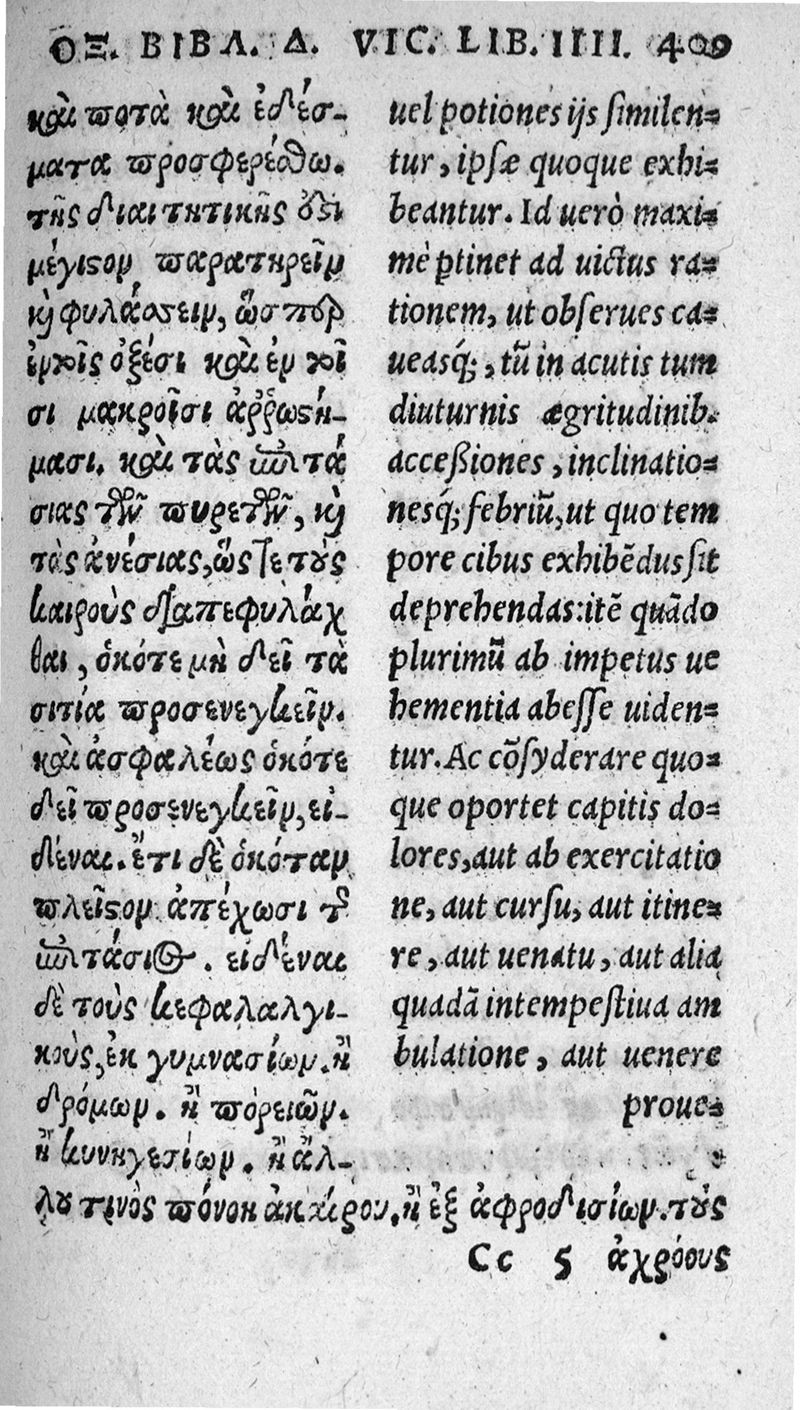 ΟΞ. ΒΙΒΛ. Δ. VIC. LIB. IIII. 409
καὶ ποτὰ καὶ ἐδέσ-
ματα προσφερέσθω.
τῆς διαιτητικῆς δέ
μέγιςον παρατηρεῖν
κὶ φυλάσσειν, ὥσπερ
ἐν τοῖς ὀξέσι καὶ ἐν τοῖ
σι μακροῖσι ἀῤῥωςή-
μασι. καὶ τὰς ἐπιτά
σιας τῶν πυρετῶν, κὶ
τὰς ἀνέσιας, ὥς τε τοὺς
καιροὺς διαπεφυλάχ
θαι, ὁκότε μὴ δεῖ τὰ
σιτία προσενεγκεῖν.
καὶ ἀσφαλέως ὁκότε
δεῖ προσενεγκεῖν, εἰ-
δέναι. ἔτι δὲ ὁκόταν
πλεῖςον ἀπέχωσι τ῀
ἐπιτάσιος. εἰδέναι
δὲ τοὺς κεφαλαλγι-
κοὺς, ἐκ γυμνασίων. ἢ
δρόμων. ἢ πορειῶν.
ἢ κυνηγεσίων. ἢ ἄλ-
λου τινὸς πόνου ἀκαίρου. ἢ ἐξ ἀφροδισίων. τοὺς
uel potiones ijs ſimilen-
tur, ipſæ quoque exhi-
beantur. Id uerò maxi-
mè ꝑtinet ad uictus ra-
tionem, ut obſerues ca-
ueasq́;, tũ in acutis tum
diuturnis ægritudinib.
acceßiones, inclinatio-
nesq́; febriũ, ut quo tem
pore cibus exhibẽdus ſit
deprehendas: itẽ quãdo
plurimũ ab impetus ue
hementia abeſſe uiden-
tur. Ac cõſyderare quo-
que oportet capitis do-
lores, aut ab exercitatio
ne, aut curſu, aut itine-
re, aut uenatu, aut alia
quadã intempeſtiua am
bulatione, aut uenere
proue-
Cc 5 ἀχρόους